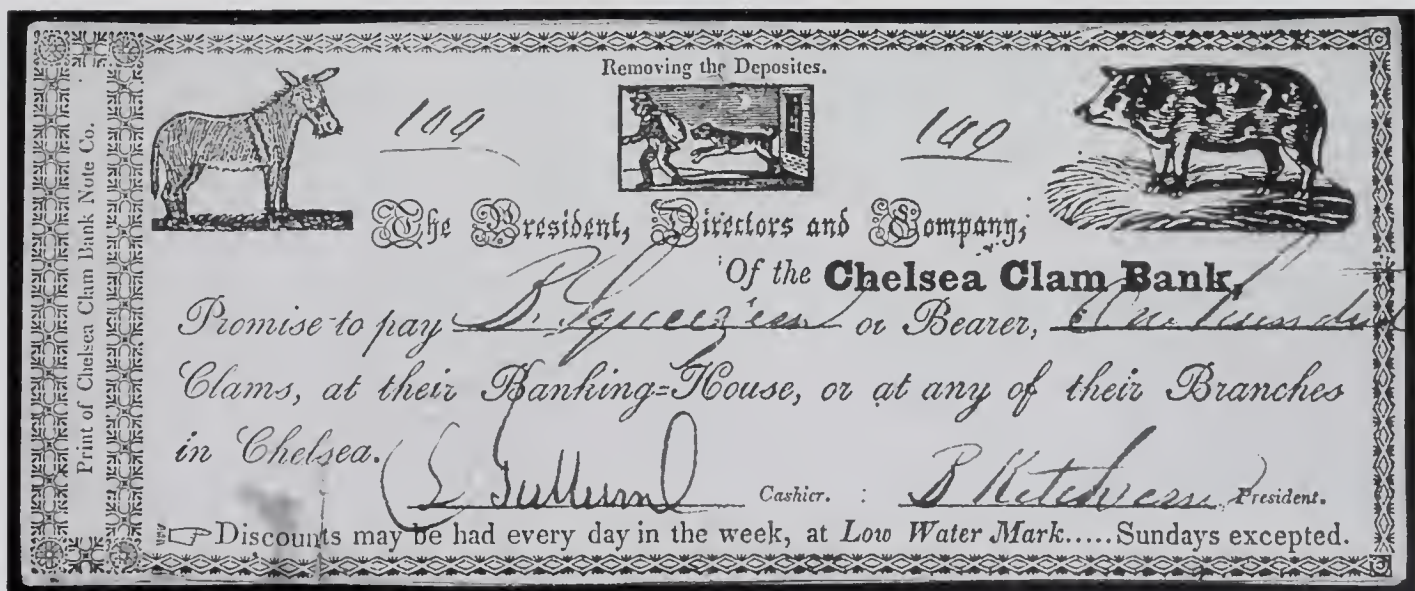 Print of Chelsea Clam Bank Note Co.
Removing the Deposites.
100
100
The President, Directors and Company,
Of the Chelsea Clam Bank,
Promise to pay or Bearer, One hundred
Clams, at their Banking=House, or at any of their Branches
in Chelsea.
Cashier. President.
☞ Discounts may be had every day in the week, at Low Water Mark.....Sundays excepted.